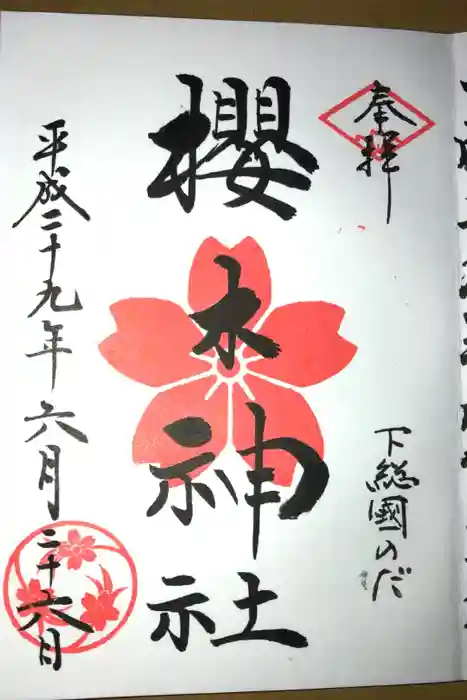 奉拝
下総國のだ
櫻木神社
平成二十九年六月二十六日